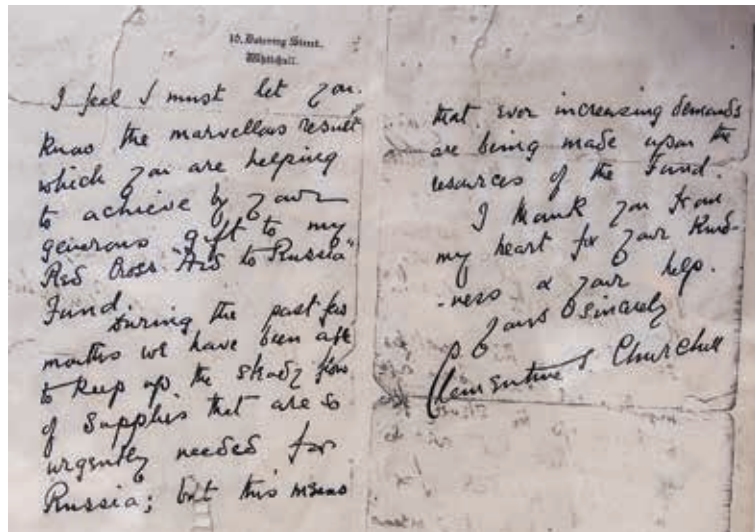 10, Downing Street,
Whitehall.
I feel I must let you
know the marvellous result
which you are helping
to achieve by your
generous gift to my
Red Cross "Aid to Russia"
Fund.
During the past few
months we have been able
to keep up the steady flow
of supplies that are so
urgently needed for
Russia; but this means
that ever increasing demands
are being made upon the
resources of the Fund.
I thank you from
my heart for your kind-
-ness & your help.
Yours sincerely
Clementine S. Churchill